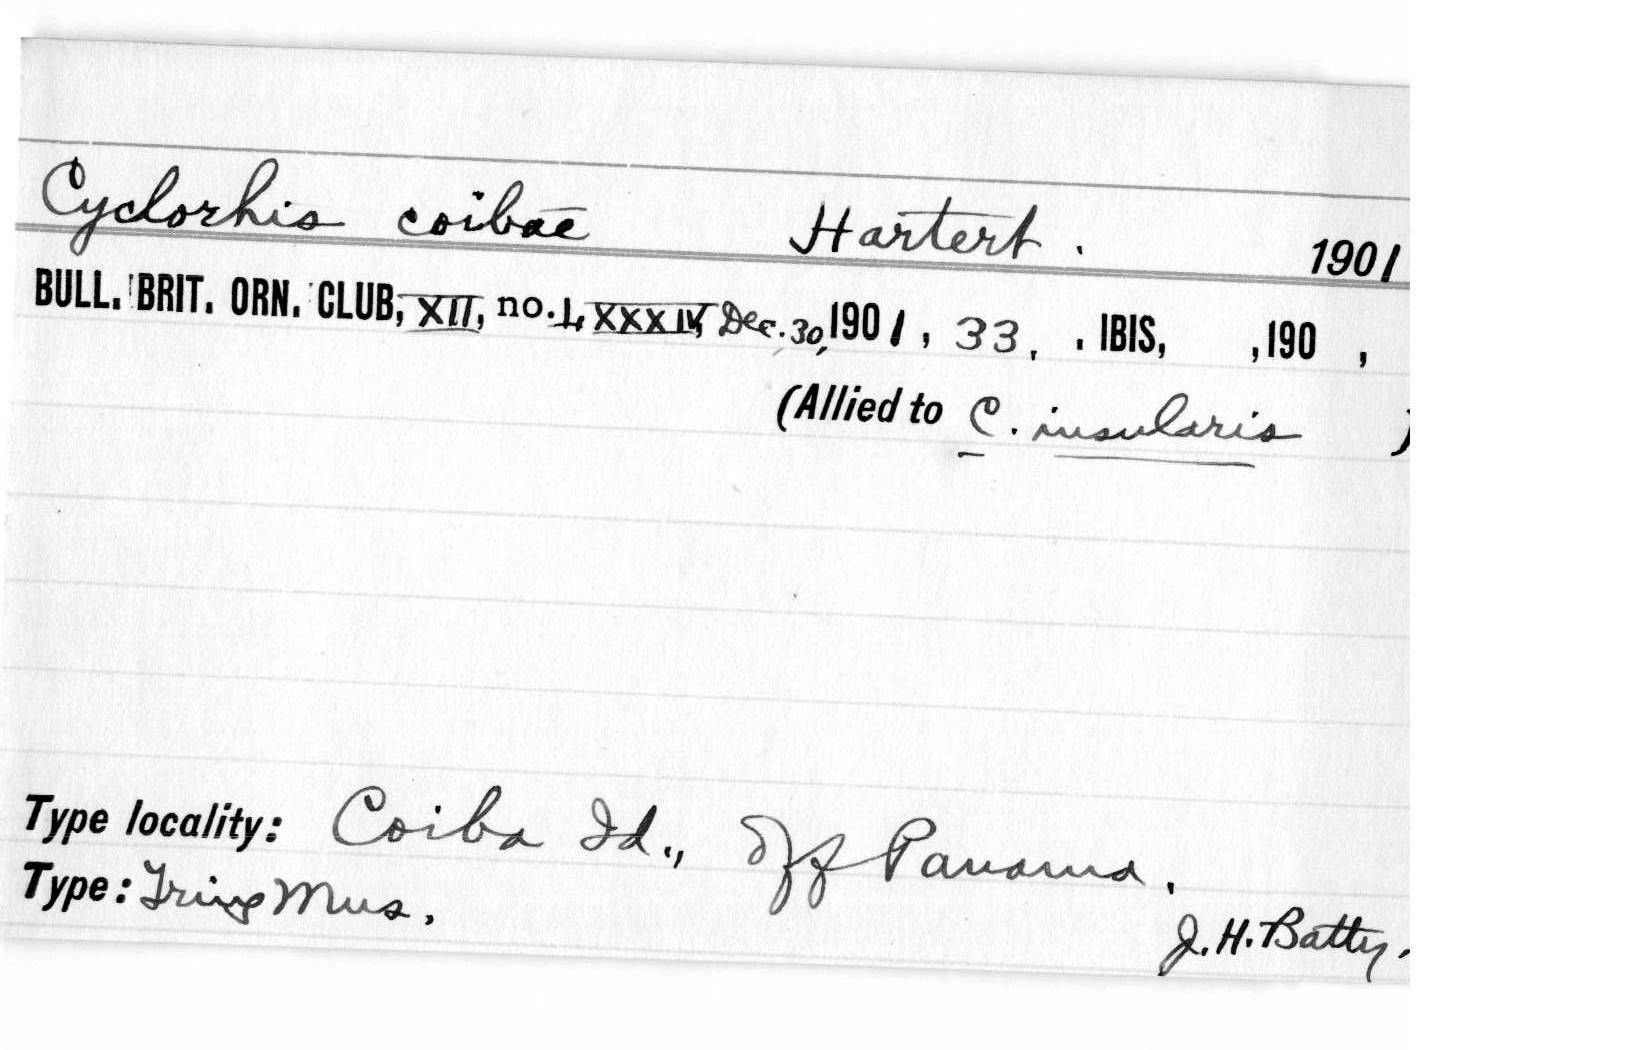 Cyclorhis coibae Hartert. 1901
BULL. BRIT. ORN. CLUB, XII, no. LXXXIV, Dec. 30, 1901, 33, . IBIS, ,190 ,
(Allied to C. insularis )
Type locality: Coiba Id., off Panama.
Type: Tring Mus.
J. H. Batty.